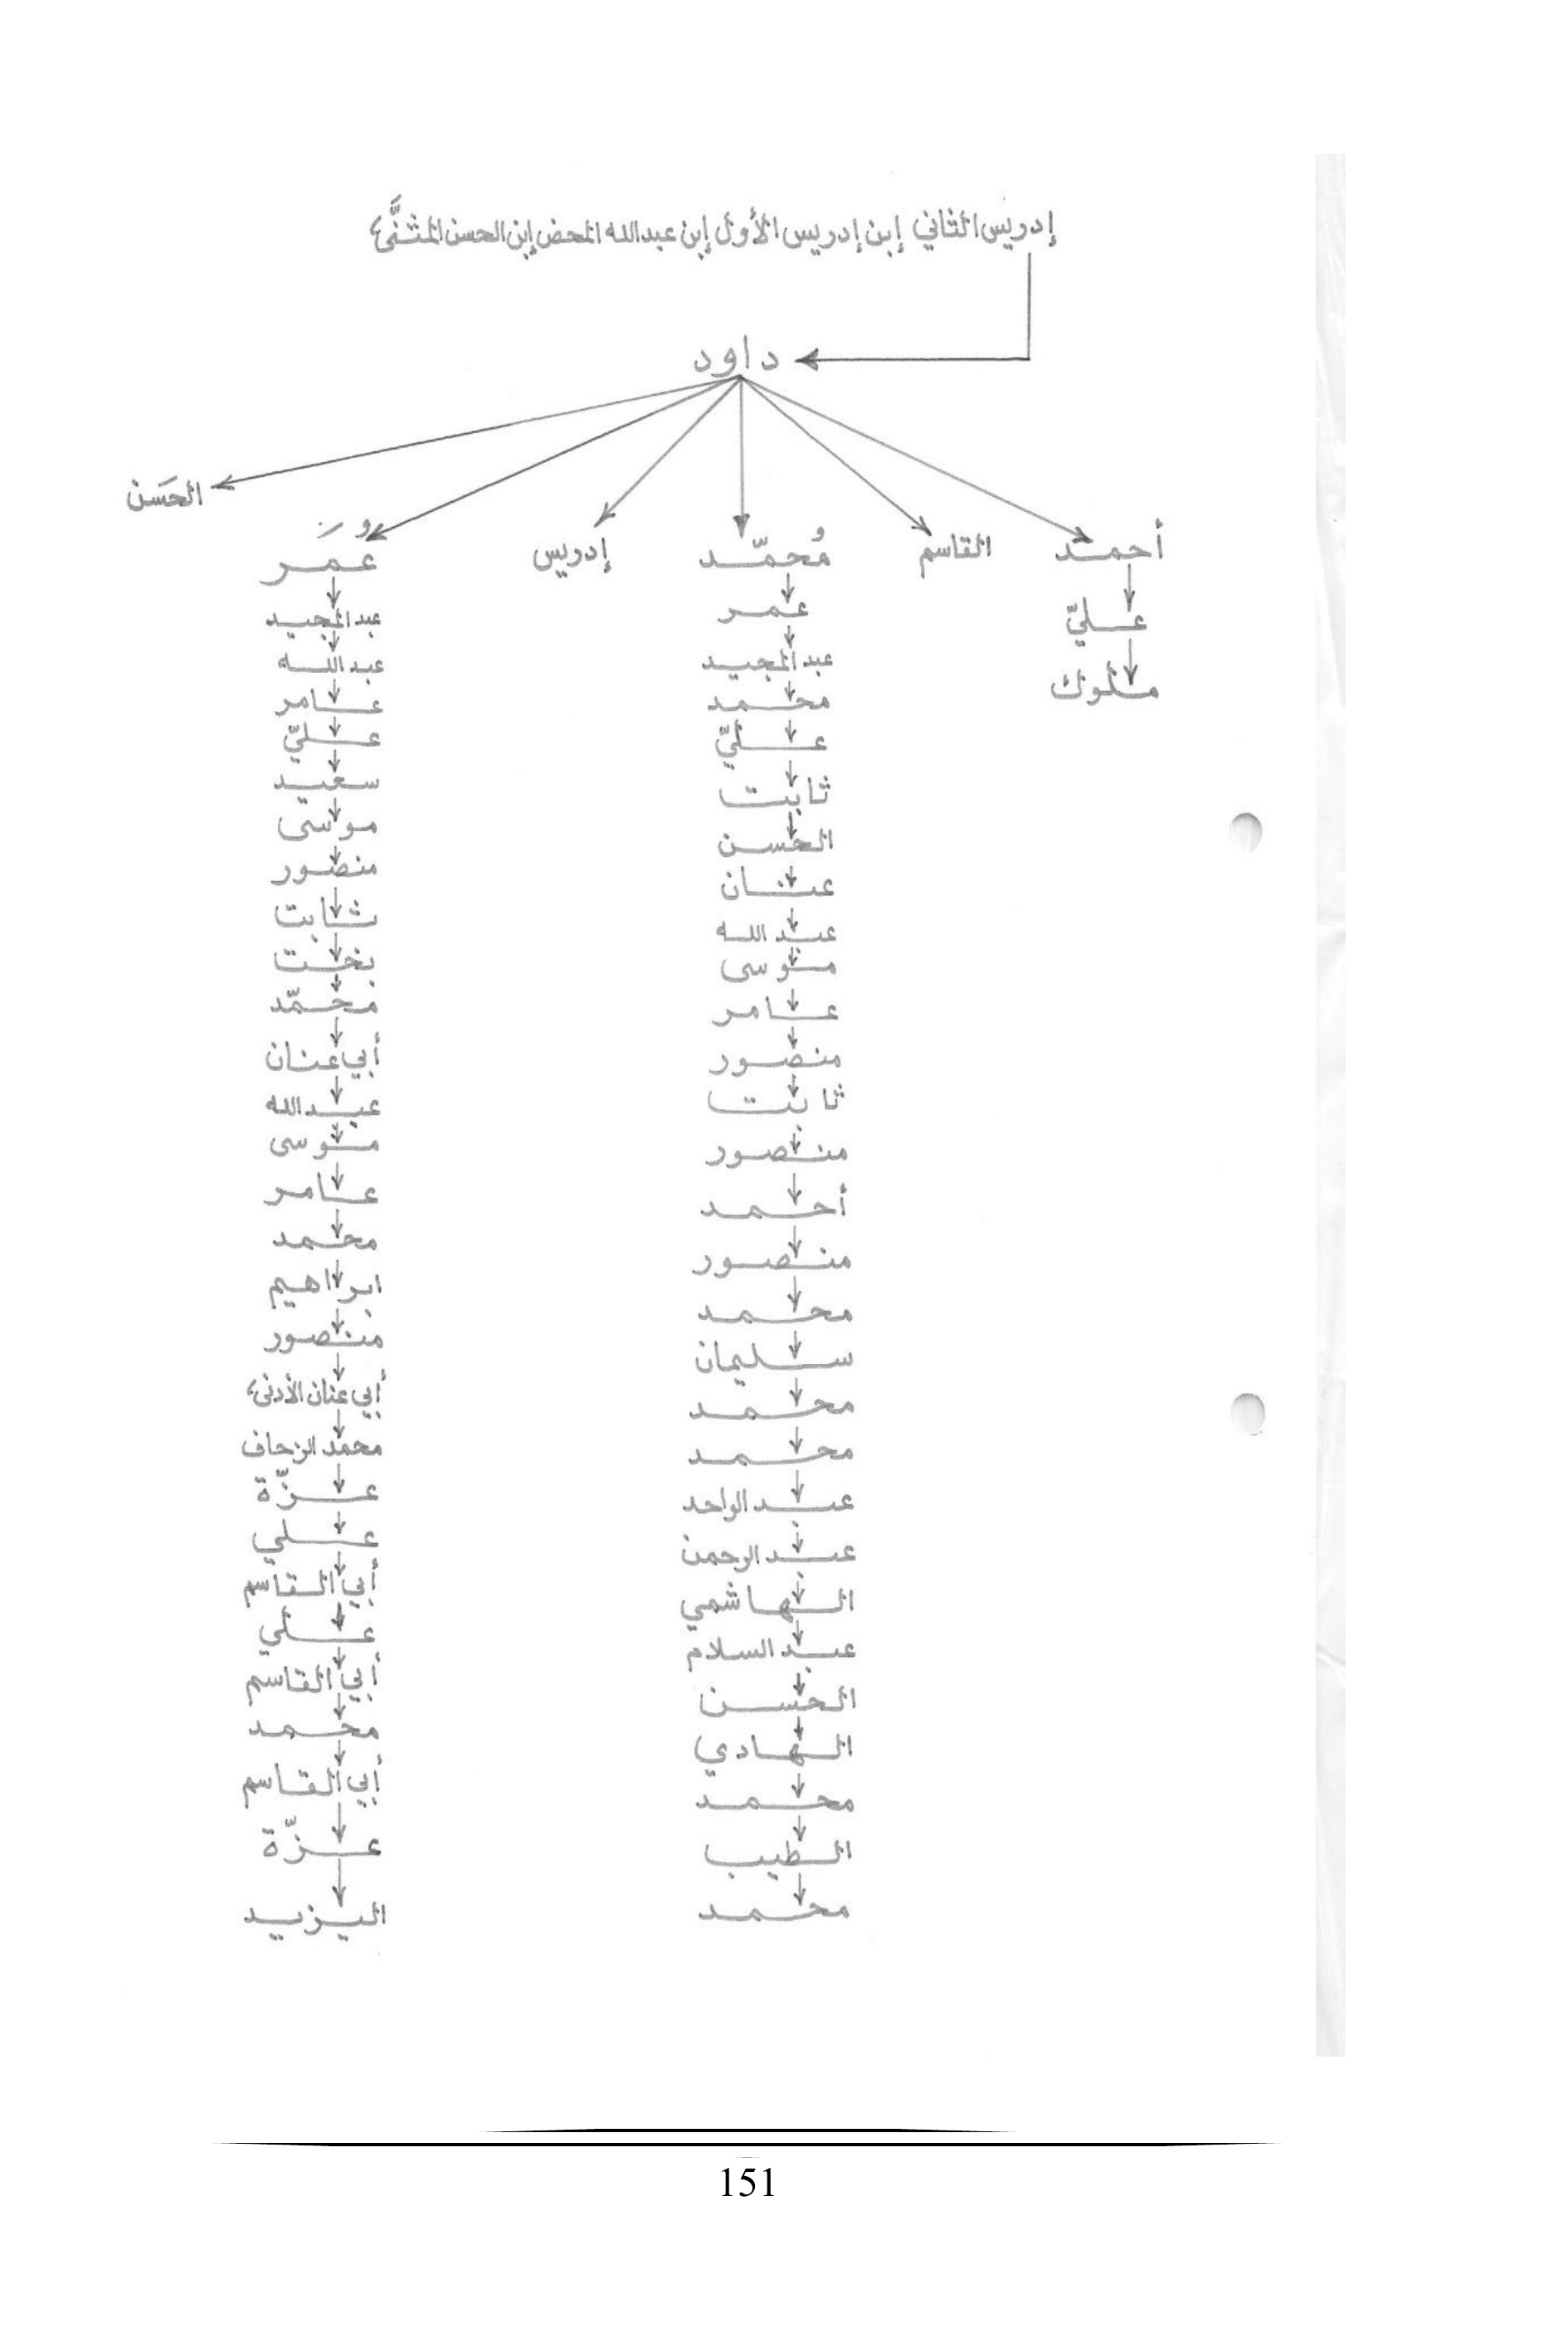 إدريس الثاني إبن إدريس الأول إبن عبد الله المحض إبن الحسن المثنَّى
داود
أحمد
القاسم
مُحمّد
إدريس
عُمَر
الحَسَن
عليّ
ملوك
عمر
عبد المجيد
محمد
عليّ
ثابت
الحسن
عنان
عبد الله
موسى
عامر
منصور
ثابت
منصور
أحمد
منصور
محمد
سليمان
محمد
محمد
عبد الواحد
عبد الرحمن
الهاشمي
عبد السلام
الحسن
الهادي
محمد
الطيب
محمد
عبد المجيد
عبد الله
عامر
عليّ
سعيد
موسى
منصور
ثابت
بخت
محمّد
أبي عنان
عبد الله
موسى
عامر
محمد
ابراهيم
منصور
أبي عنان الأدنى
محمد الزحاف
عزّة
علي
أبي القاسم
علي
أبي القاسم
محمد
أبي القاسم
عزّة
اليزيد
151